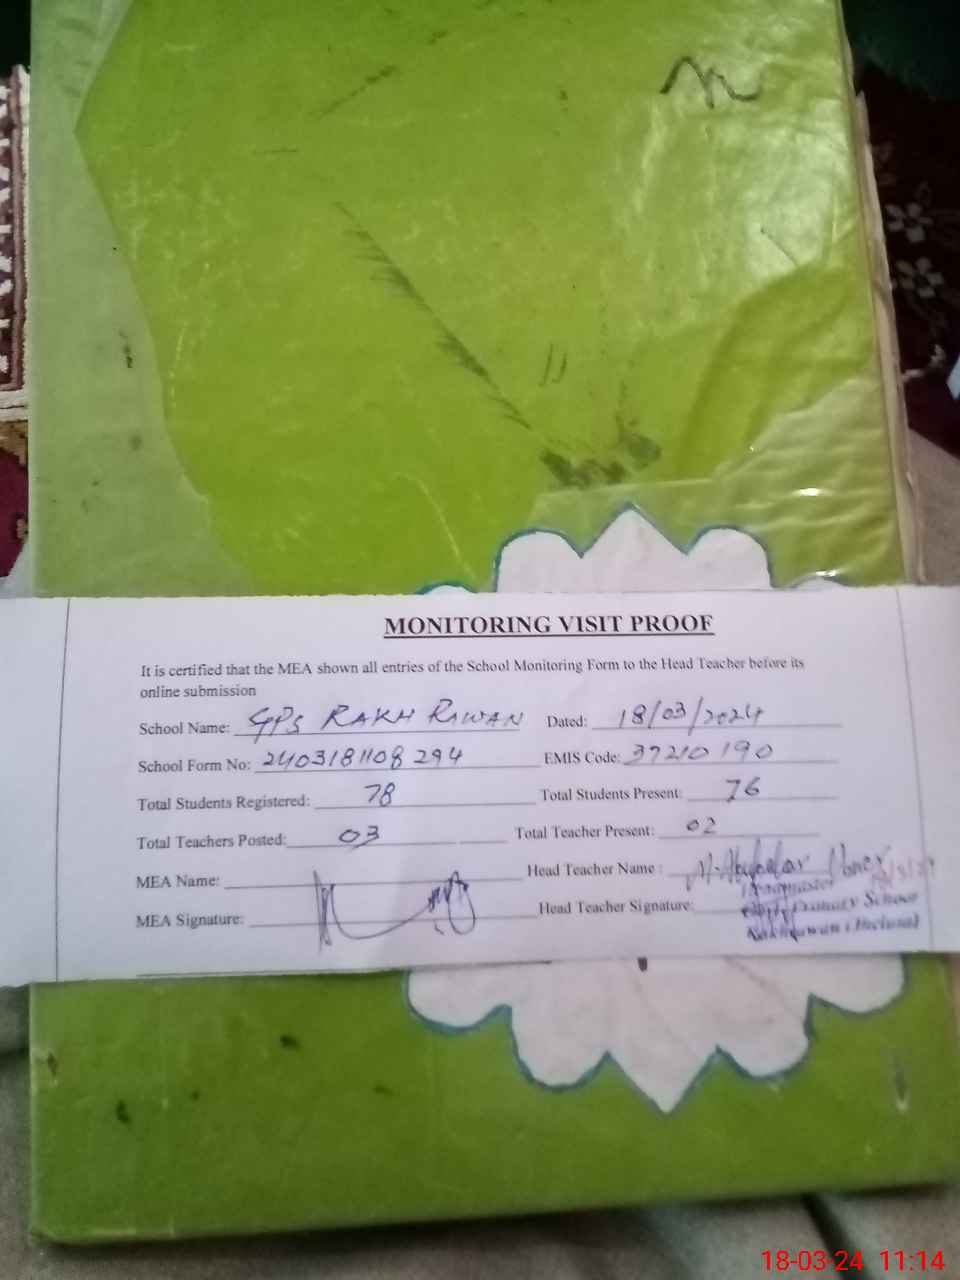 MONITORING VISIT PROOF
It is certified that the MEA shown all entries of the School Monitoring Form to the Head Teacher before its
online submission
School Name: GPS RAKH RAWAN Dated: 18/03/2024
School Form No: 2403181108 294 EMIS Code: 37210190
Total Students Registered: 78 Total Students Present: 76
Total Teachers Posted: 03 Total Teacher Present: 02
MEA Name: Head Teacher Name :
MEA Signature: Head Teacher Signature:
Headmaster
Primary School
18-03-24 11:14